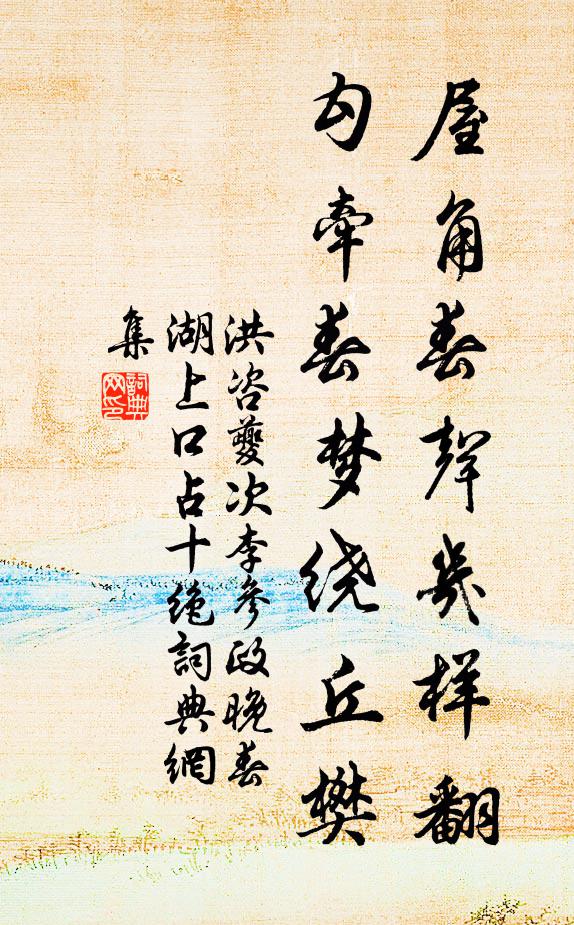 屋角春聲幾样翻
勾牽春梦绕丘樊
洪咨夔次李參政晚春
湖上口占十绝詞典網
集
詞典网印